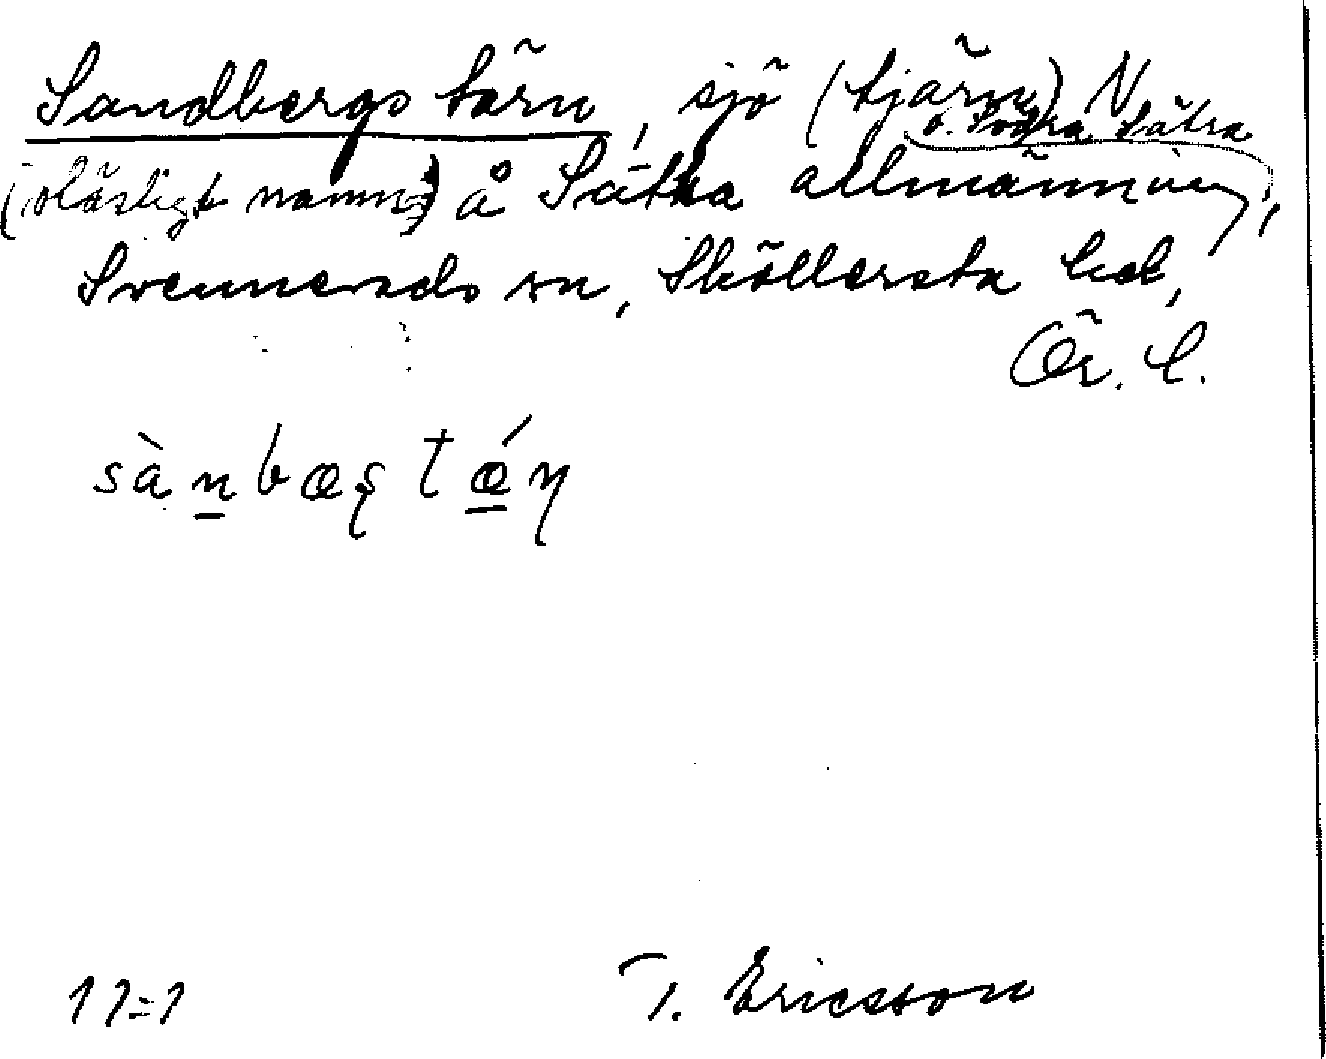 Sandbergstärn, sjö (tjärn) N
o. Södra Sätra
(oläsligt namn) å Sätra allmänning,
Svennevads sn, Sköllersta hd,
Ör. l.
sànbæʂtǽɳ
T. Ericsson